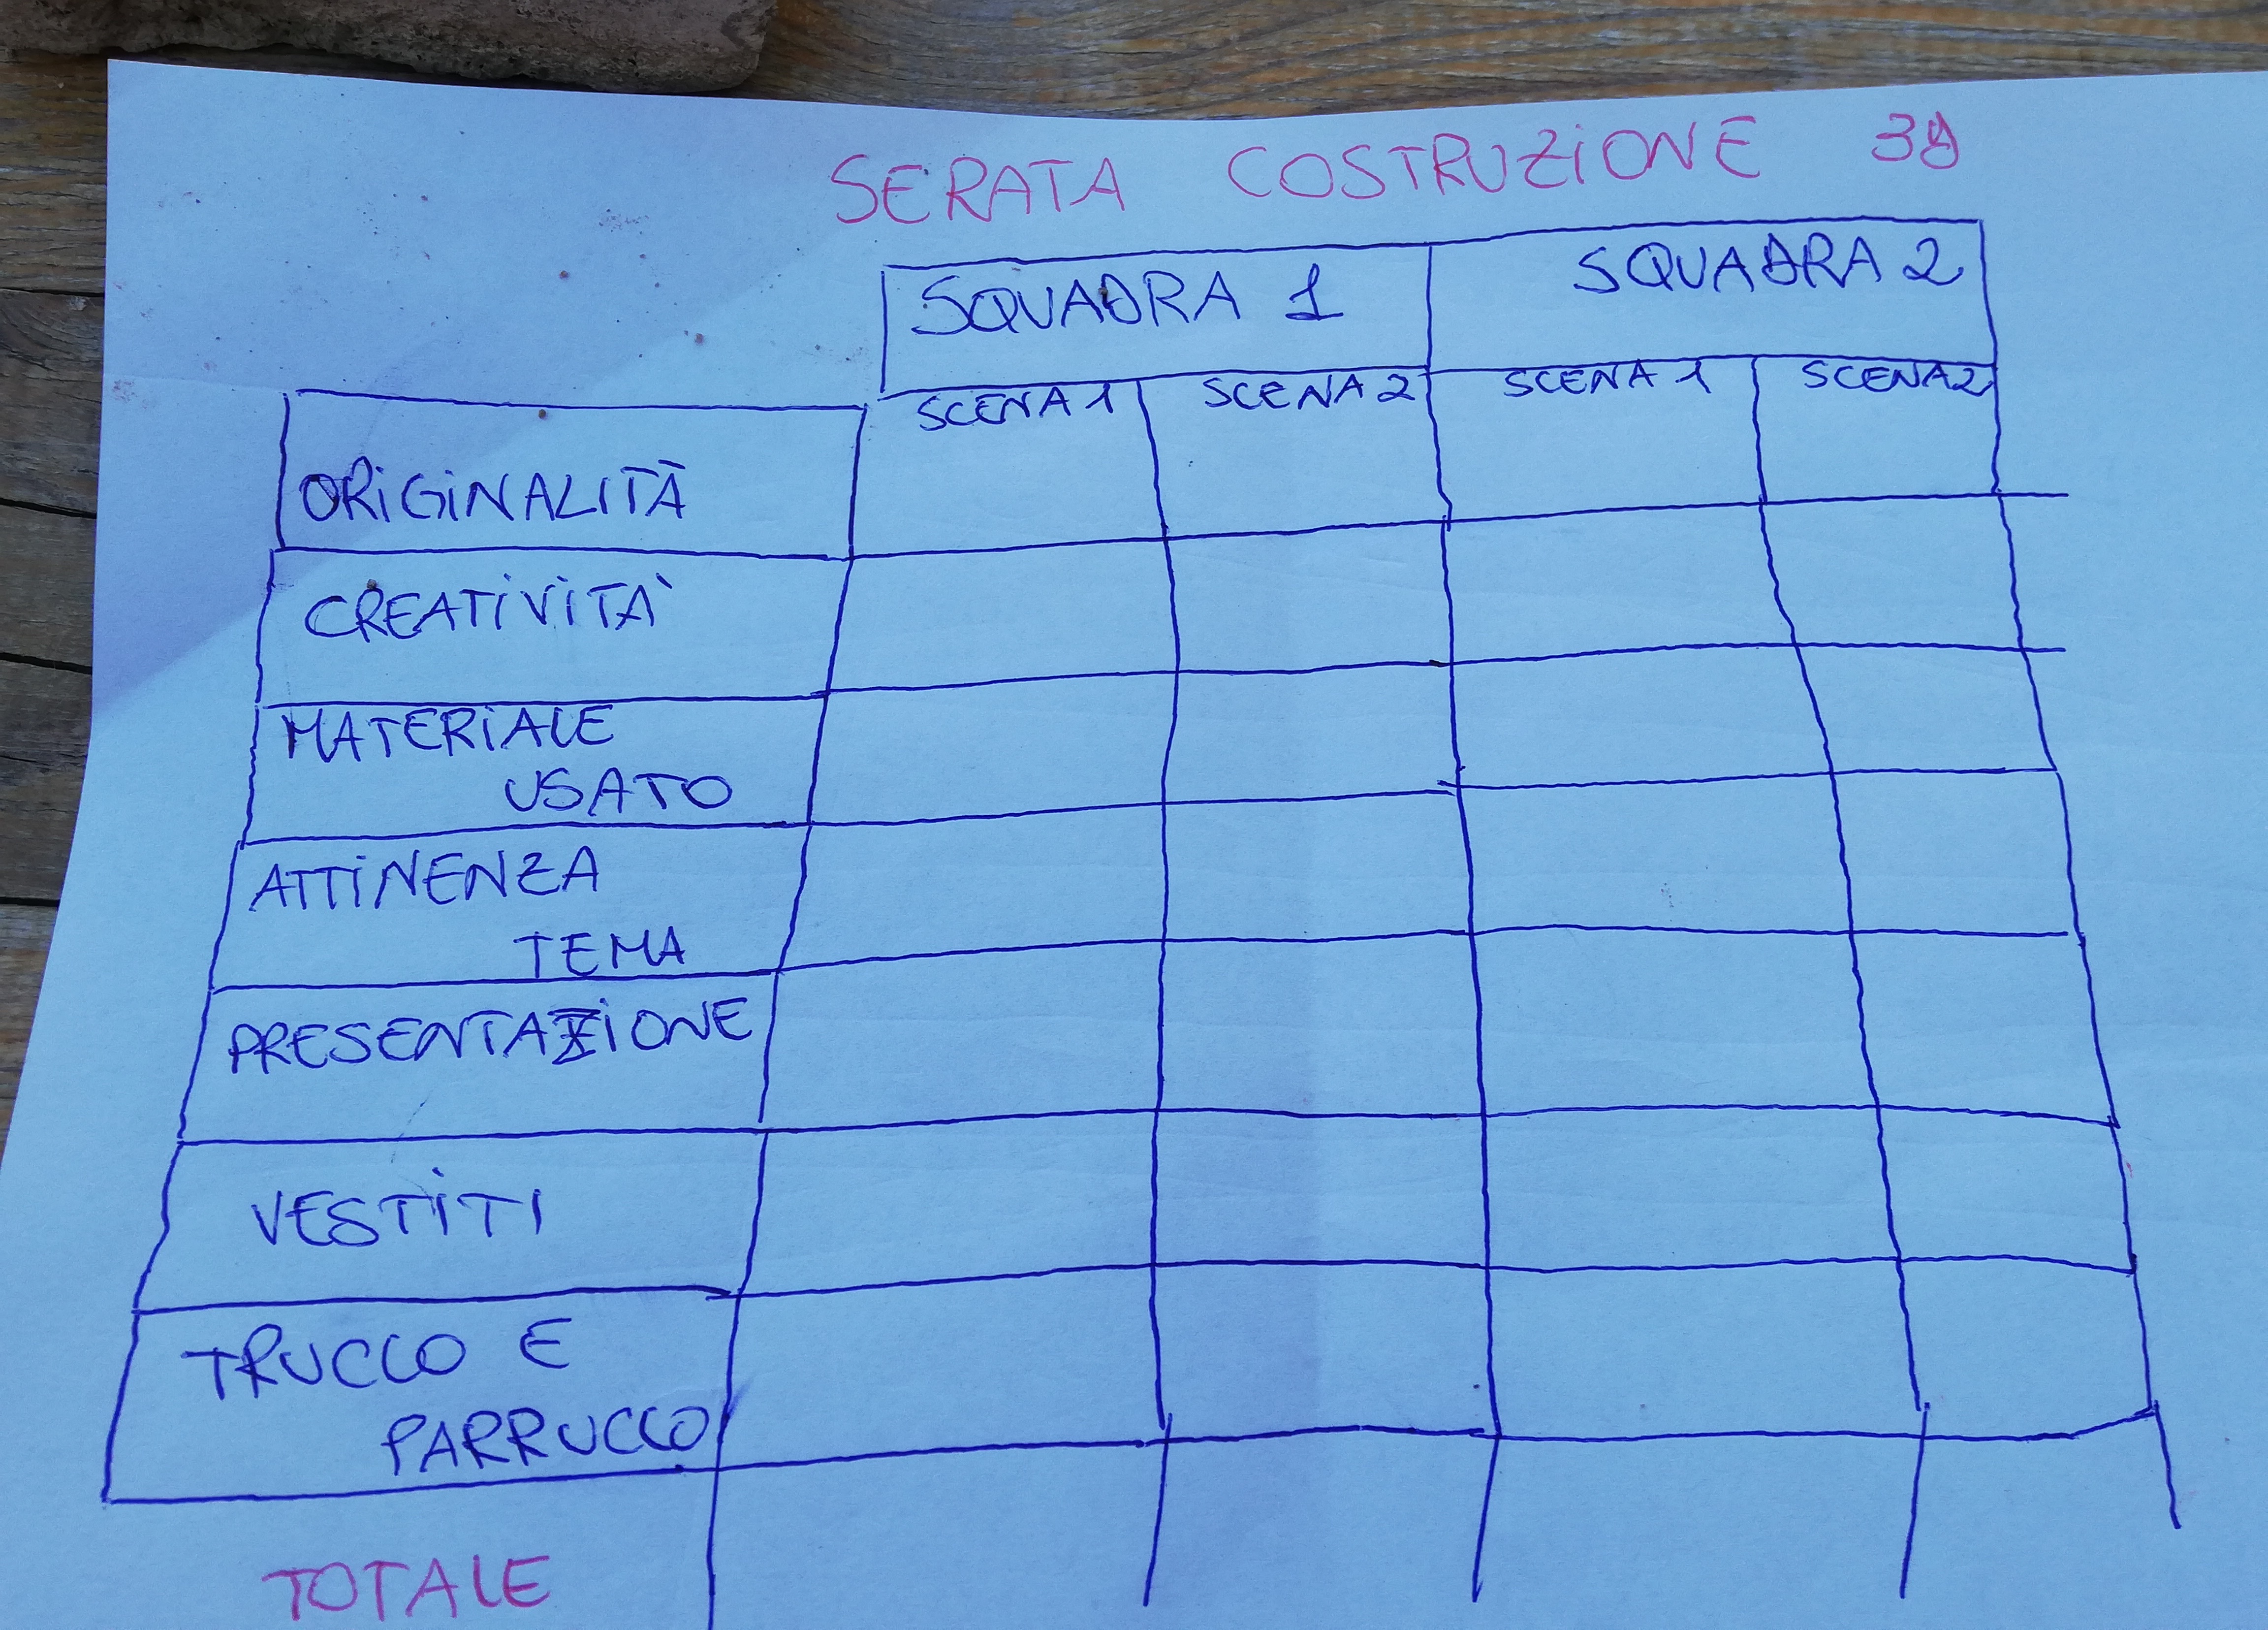 SERATA COSTRUZIONE 3D
SQUADRA 1 SQUADRA 2
SCENA 1 SCENA 2 SCENA 1 SCENA 2
ORIGINALITÀ
CREATIVITÀ
MATERIALE
USATO
ATTINENZA
TEMA
PRESENTAZIONE
VESTITI
TRUCCO E
PARRUCCO
TOTALE